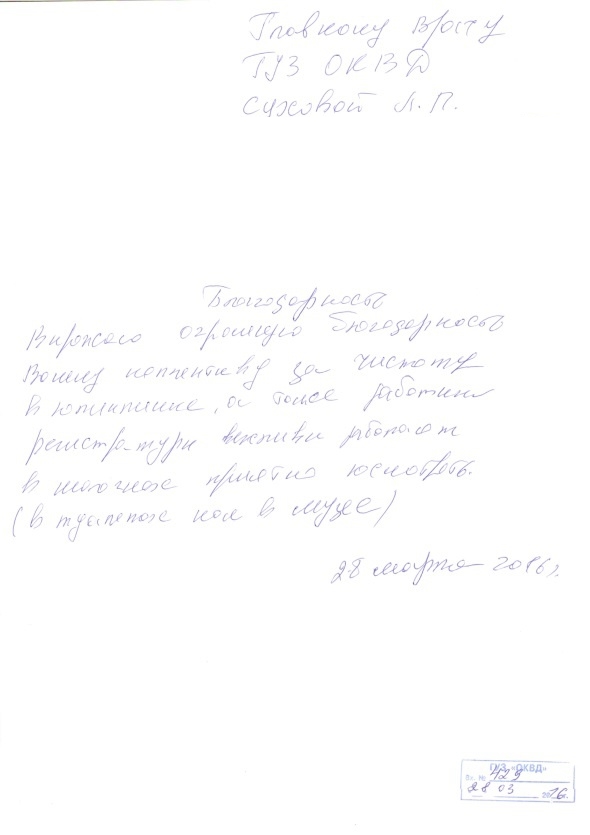 Главному врачу
ГУЗ ОКВД
Суховой Л.П.
Благодарность
Выражаю огромную благодарность
Вашему коллективу за чистоту
в поликлинике, а также работники
регистратуры вежливы работают
в шапочках приятно посмотреть.
(в туалетах как в музее)
28 марта 2016г.
ГУЗ «ОКВД»
Вх. № 429
28 03 2016.